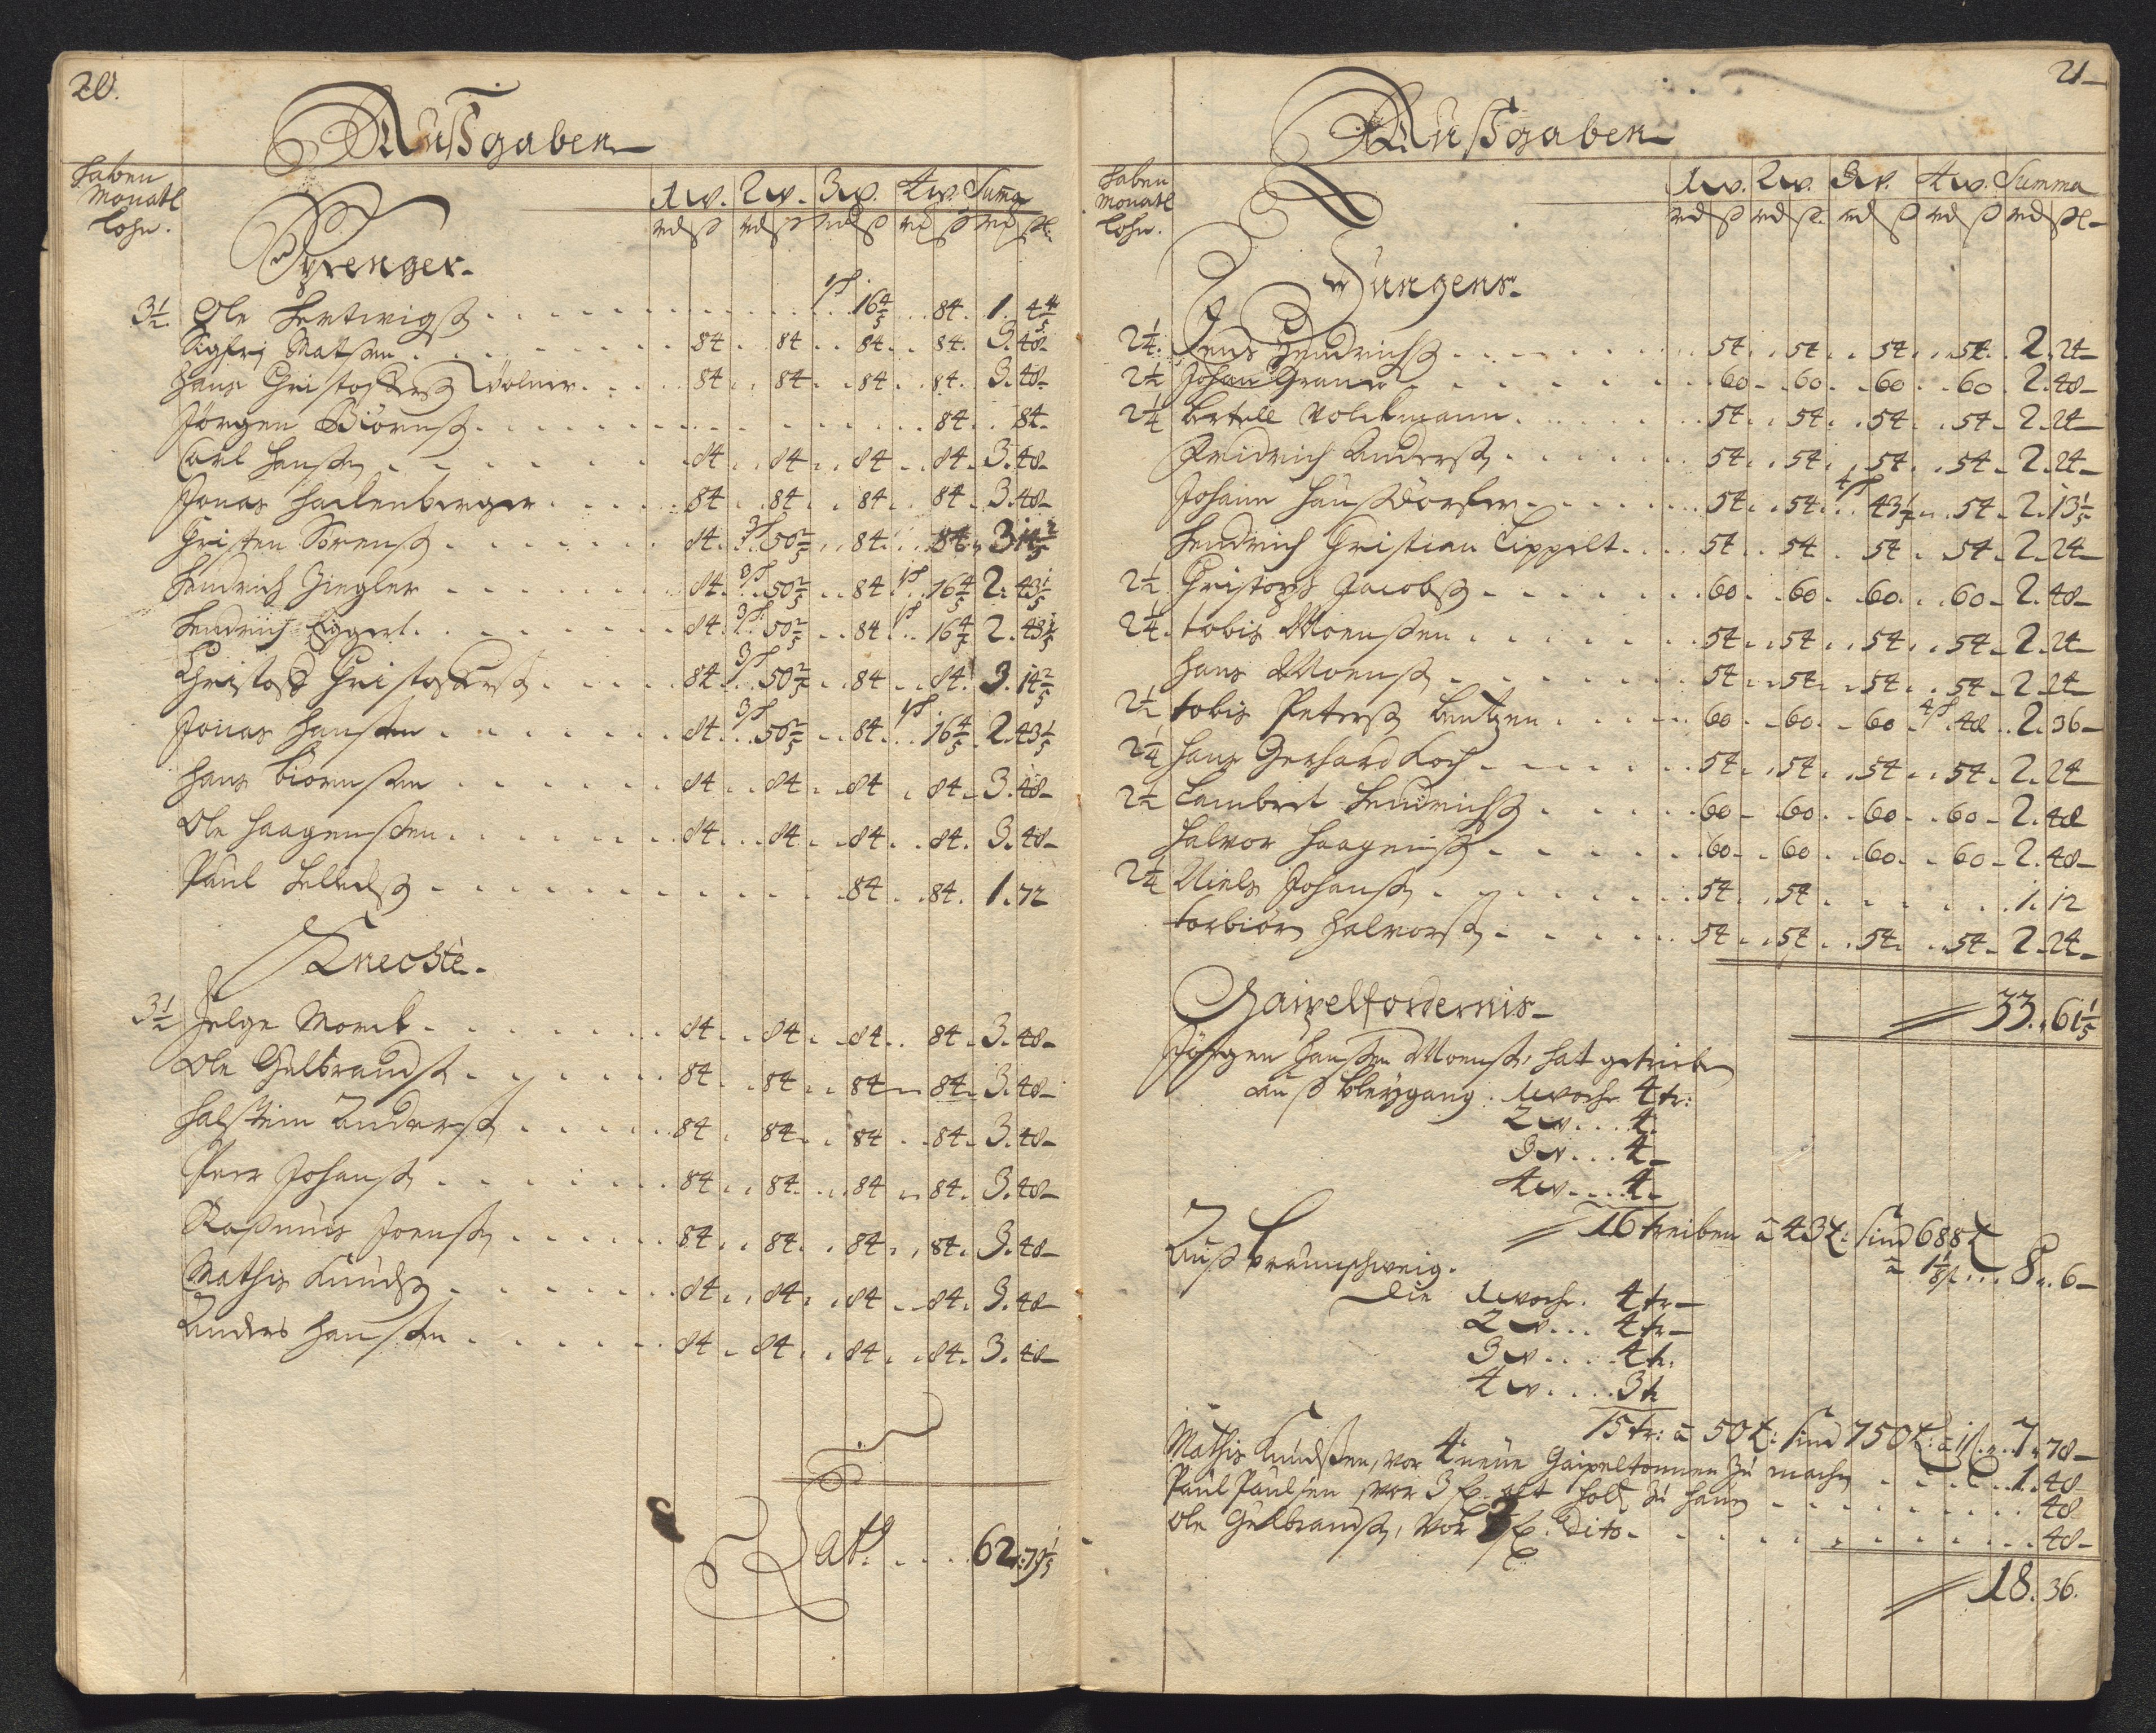 20.
Außgaben
haben
Monatl
Lohn.
1 w. 2 w. 3 w. 4 w. Summa
Sprenger.
3½ Ole Hertwigß . . . 1 S 16 4/5 . . 84 . 1 . 4 4/5
Sigfri Matsen . . . 84 . 84 . 84 . 84 . 3 . 48
Hans Christoffers Volner . . . 84 . 84 . 84 . 84 . 3 . 48
Jörgen Biörnß . . . 84 . 84
Carl Hanß . . . 84 . 84 . 84 . 84 . 3 . 48
Jonas Hallenberger . . . 84 . 84 . 84 . 84 . 3 . 48
Christen Sörenß . . . 84 . 3 S 50 2/5 . 84 . 84 . 3 14 2/5
Hendrich Ziegler . . . 84 . 3 S 50 2/5 . 84 . 1 S 16 4/5 2 . 43 1/5
Hendrich Eggert . . . 84 . 3 S 50 2/5 . 84 . 1 S 16 4/5 2 . 43 1/5
Christoff Christoffersß . . . 84 . 3 S 50 2/5 . 84 . 84 . 3 . 14 2/5
Jonas Hansen . . . 84 . 3 S 50 2/5 . 84 . 1 S 16 4/5 . 2 . 43 1/5
Hans Biörnsen . . . 84 . 84 . 84 . 84 . 3 . 48
Ole Haagensen . . . 84 . 84 . 84 . 84 . 3 . 48
Paul . . . 84 . 84 . 1 . 72
Knechte.
3½ Helge Morck . . . 84 . 84 . 84 . 84 . 3 . 48
Ole Gulbrandß . . . 84 . 84 . 84 . 84 . 3 . 48
Halstein Anderß . . . 84 . 84 . 84 . 84 . 3 . 48
Peer Johanß . . . 84 . 84 . 84 . 84 . 3 . 48
Rasmus Joenß . . . 84 . 84 . 84 . 84 . 3 . 48
Mathis Knudß . . . 84 . 84 . 84 . 84 . 3 . 48
Anders Hansen . . . 84 . 84 . 84 . 84 . 3 . 48
Latg . . . 62 . 79 1/5
21
Außgaben
haben
Monatl
Lohn.
1 w. 2 w. 3 w. 4 w. Summa
Jungens.
2¼ Jens Hendrichß . . . 54 . 54 . 54 . 54 . 2 . 24
2½ Johan Graner . . . 60 . 60 . 60 . 60 . 2 . 48
2¼ Bertell Volckmann . . . 54 . 54 . 54 . 54 . 2 . 24
Fridrich Anderß . . . 54 . 54 . 54 . 54 . 2 . 24
Johann Haußdörfer . . . 54 . 54 . 4 S 43 1/5 . 54 . 2 . 13 1/5
Hendrich Christian Lippelt . . . 54 . 54 . 54 . 54 . 2 . 24
2½ Christoph Jacobß . . . 60 . 60 . 60 . 60 . 2 . 48
2¼ Tobis Moensen . . . 54 . 54 . 54 . 54 . 2 . 24
Hans Moenß . . . 54 . 54 . 54 . 54 . 2 24
2½ Tobis Peterß Bentzen . . . 60 . 60 . 60 4 S 48 . 2 . 36
2¼ Hans Gerhard Koch . . . 54 . 54 . 54 . 54 . 2 . 24
2½ Lambert Hendrichß . . . 60 . 60 . 60 . 60 . 2 . 48
Halvor Haagenß . . . 60 . 60 . 60 . 60 . 2 . 48
2¼ Niels Johanß . . . 54 . 54 . . . 1 . 12
Torbiörn Halvorß . . . 54 . 54 . 54 . 54 . 2 . 24
33 . 61 1/5
Gaipelfordernis
Jörgen Hansen Moenß, hat getrieben
auß Bleygang. 1 woche 4 tr:
2 w . . . 4.
3 w . . . 4
4 w . . . 4
16 treiben à 43 t: sind 688 t
à 1 1/8 ß . . . 8 . 6
Auß Braunschweig.
Die 1 woche. 4 tr
2 w . . . 4 tr
3 w . . . 4 tr.
4 w . . . 3 tr
15 tr: à 50 t: sind 750 t: à 1 ß . . . 7 . 78
Mathis Knudsen, vor 4 neue Gaipeltonnen zu machen . . . 1 . 48
Paul Paulsen vor 3 holtz zu hauen . . . 48
Ole Gulbrandß, vor 3 dito . . . 48
18 . 36.